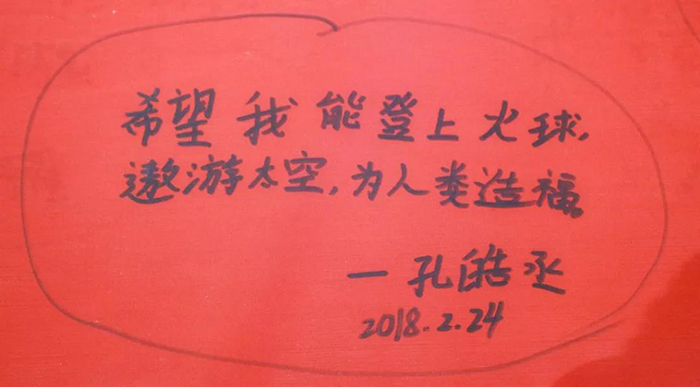 希望我能登上火球,
遨游太空,为人类造福。
—孔皓丞
2018.2.24